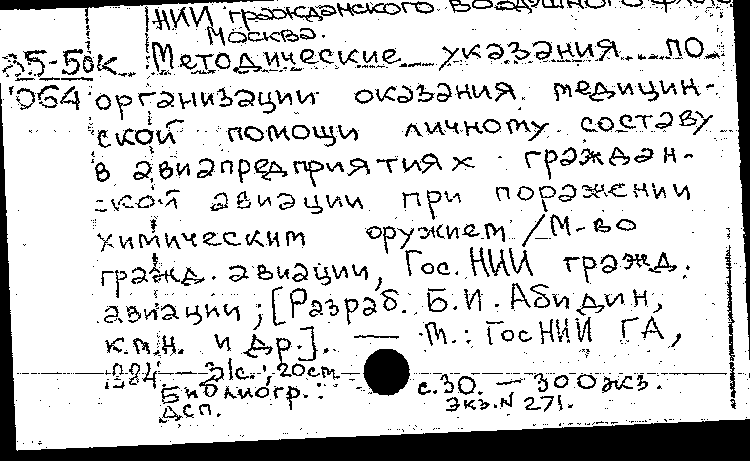 НИИ гражданского воздушного флота
Москва.
85-50к Методические указания по
064 организации оказания медицин-
ской помощи личному составу
в авиапредприятиях граждан-
ской авиации при поражении
химическим оружием / М-во
гражд. авиации, Гос. НИИ гражд.
авиации ; [Разраб. Б.И. Абидин,
к.м.н. и др.]. — М.: ГосНИИ ГА,
1984 — 31с. ; 20см
Библиогр.: с.30. — 300экз.
Дсп. Экз.N 271.